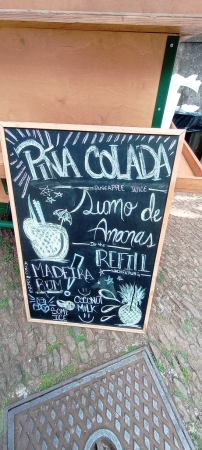 PIÑA COLADA
PINEAPPLE JUICE
Sumo de
Ananas
REFILL
MADEIRA
RUM!
COCONUT
MILK